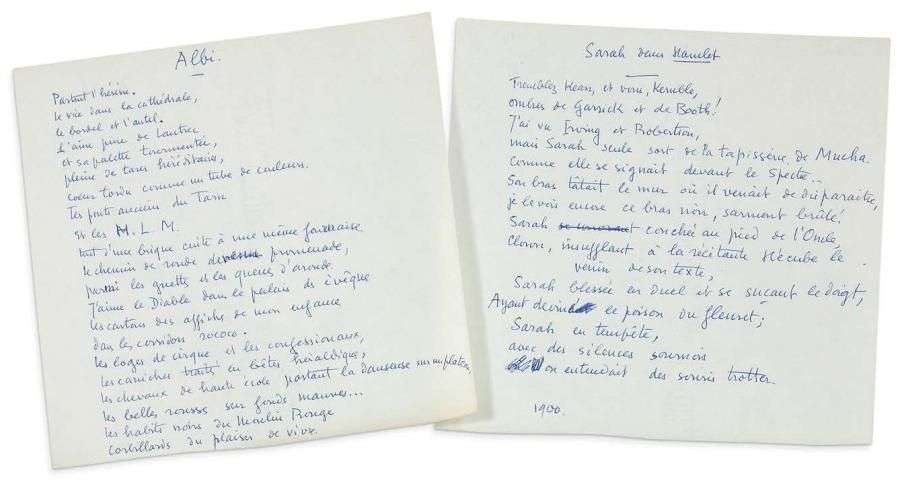 Albi.
Partout l'hérésie.
le vice dans la cathédrale,
le bordel et l'autel.
J'aime pure de Lautrec
et sa palette tourmentée,
pleine de tares héréditaires,
cœur tordu comme un tube de couleurs.
Tes ponts anciens du Tarn
et les H.L.M.
tout d'une brique cuite à une même fournaise
le chemin de ronde devenu promenade,
parmi les guettes et les queues d'aronde.
J'aime le Diable dans le palais des évêques
les cartons des affiches de mon enfance
dans les corridors rococo.
les loges de cirque et les confessionaux,
les caniches traités en bêtes héraldiques,
les chevaux de haute école portant la danseuse sur un plateau,
les belles rousses sur fonds mauves...
les habits noirs du Moulin Rouge
Corbillards du plaisir de vivre.
Sarah dans Hamlet
Tremblez Kean, et vous, Kemble,
ombres de Garrick et de Booth!
J'ai vu Irving et Robertson,
mais Sarah seule sort de la tapisserie de Mucha
comme elle se signait devant le Spectre..
Son bras tâtait le mur où il venait de disparaître,
je le vois encore ce bras noir, sarment brûlé!
Sarah couchée au pied de l'Oncle,
Clown, insufflant à la récitante Hécube le
venin de son texte,
Sarah blessée en Duel et se suçant le doigt,
Ayant deviné le poison du fleuret;
Sarah en tempête,
avec des silences sournois
on entendait des souris trotter.
1900.